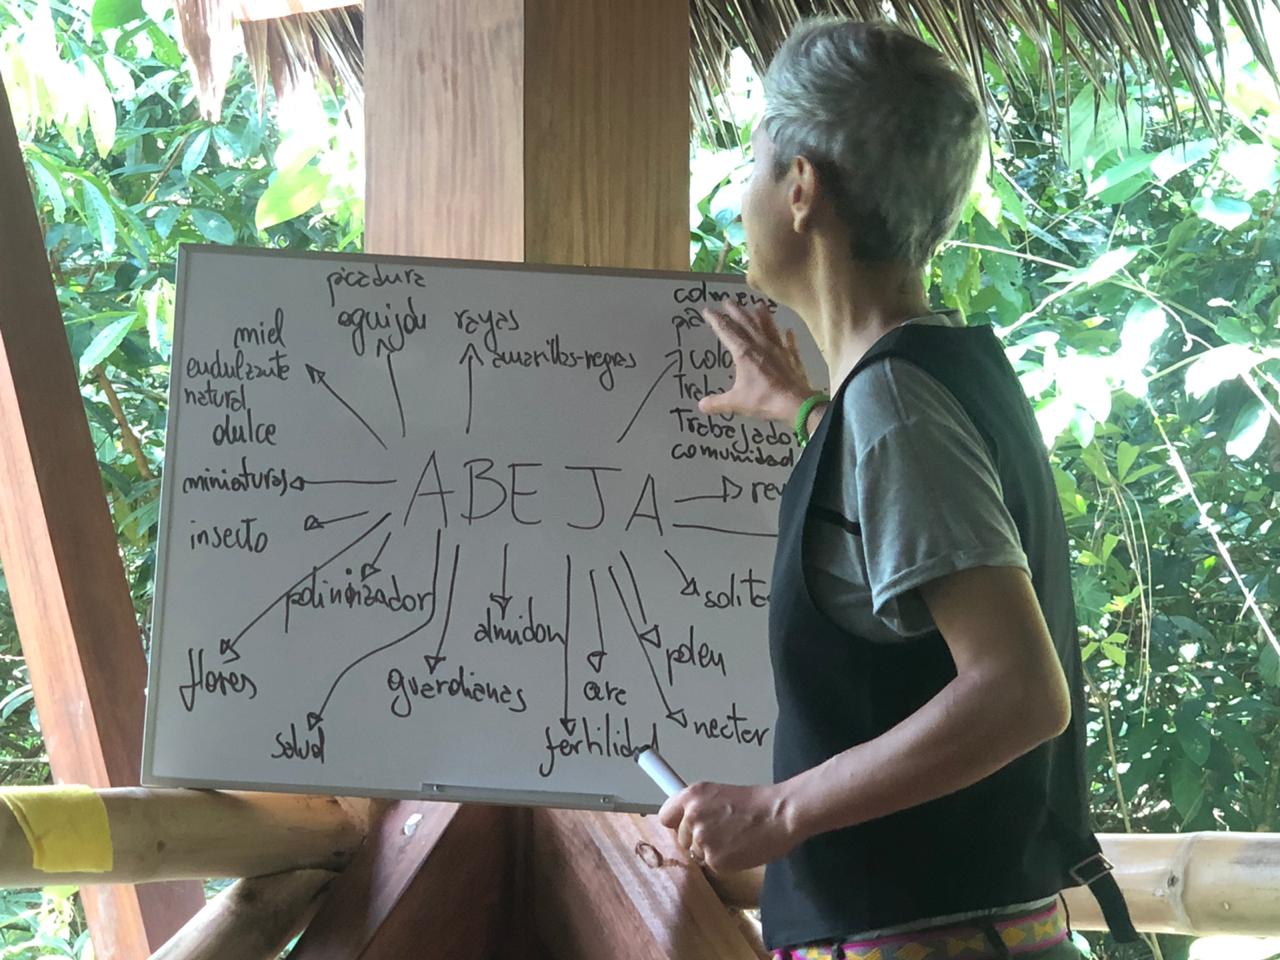 picadura
aguijón
rayas
amarillas-negras
miel
endulzante
natural
dulce
colmena
Trabajador
comunidad
miniaturas
ABEJA
insecto
polinizador
almidon
polen
flores
guardianas
cera
nectar
salud
fertilidad